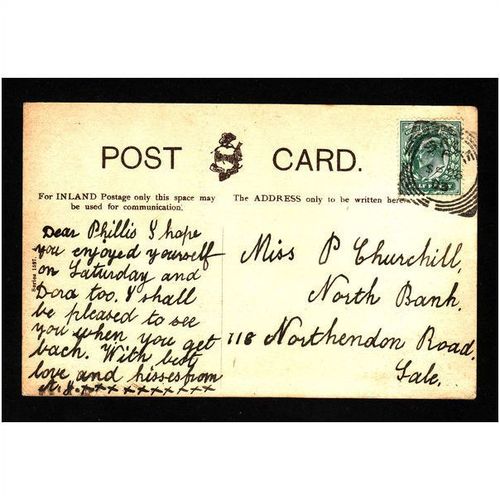 POST CARD.
For INLAND Postage only this space may
be used for communication.
The ADDRESS only to be written here.
Dear Phillis I hope
you enjoyed yourself
on Saturday and
Dora too. I shall
be pleased to see
you when you get
back. With best
love and kisses from
x x x x x x x x x x x
Miss P Churchill,
North Bank.
118 Northendon Road,
Sale.
Series 1597.